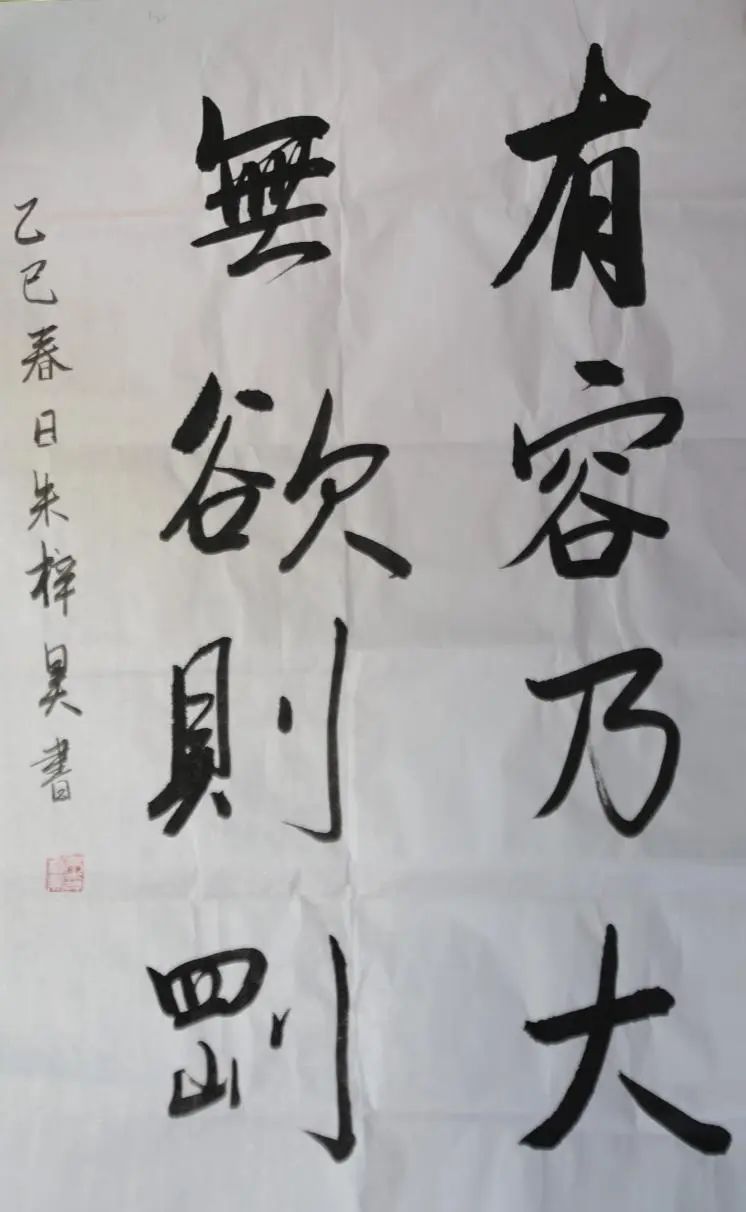 有容乃大
無欲則剛
乙巳春日朱梓昊書